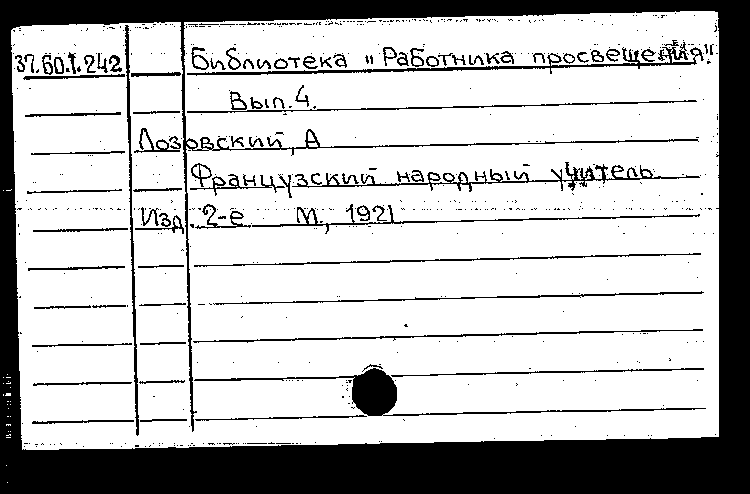 37.60.1.242 Библиотека "Работника просвещения".
Вып. 4.
Лозовский, А
Французский народный учитель
Изд. 2-е М., 1921